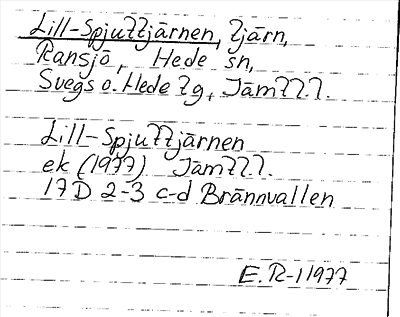 Lill-Spjuttjärnen, tjärn,
Ransjö, Hede sn,
Svegs o. Hede tg, Jämtl.l.
Lill-Spjuttjärnen
ek (1977) Jämtl.l.
17D 2-3 c-d Brännvallen
E.R-l 1977